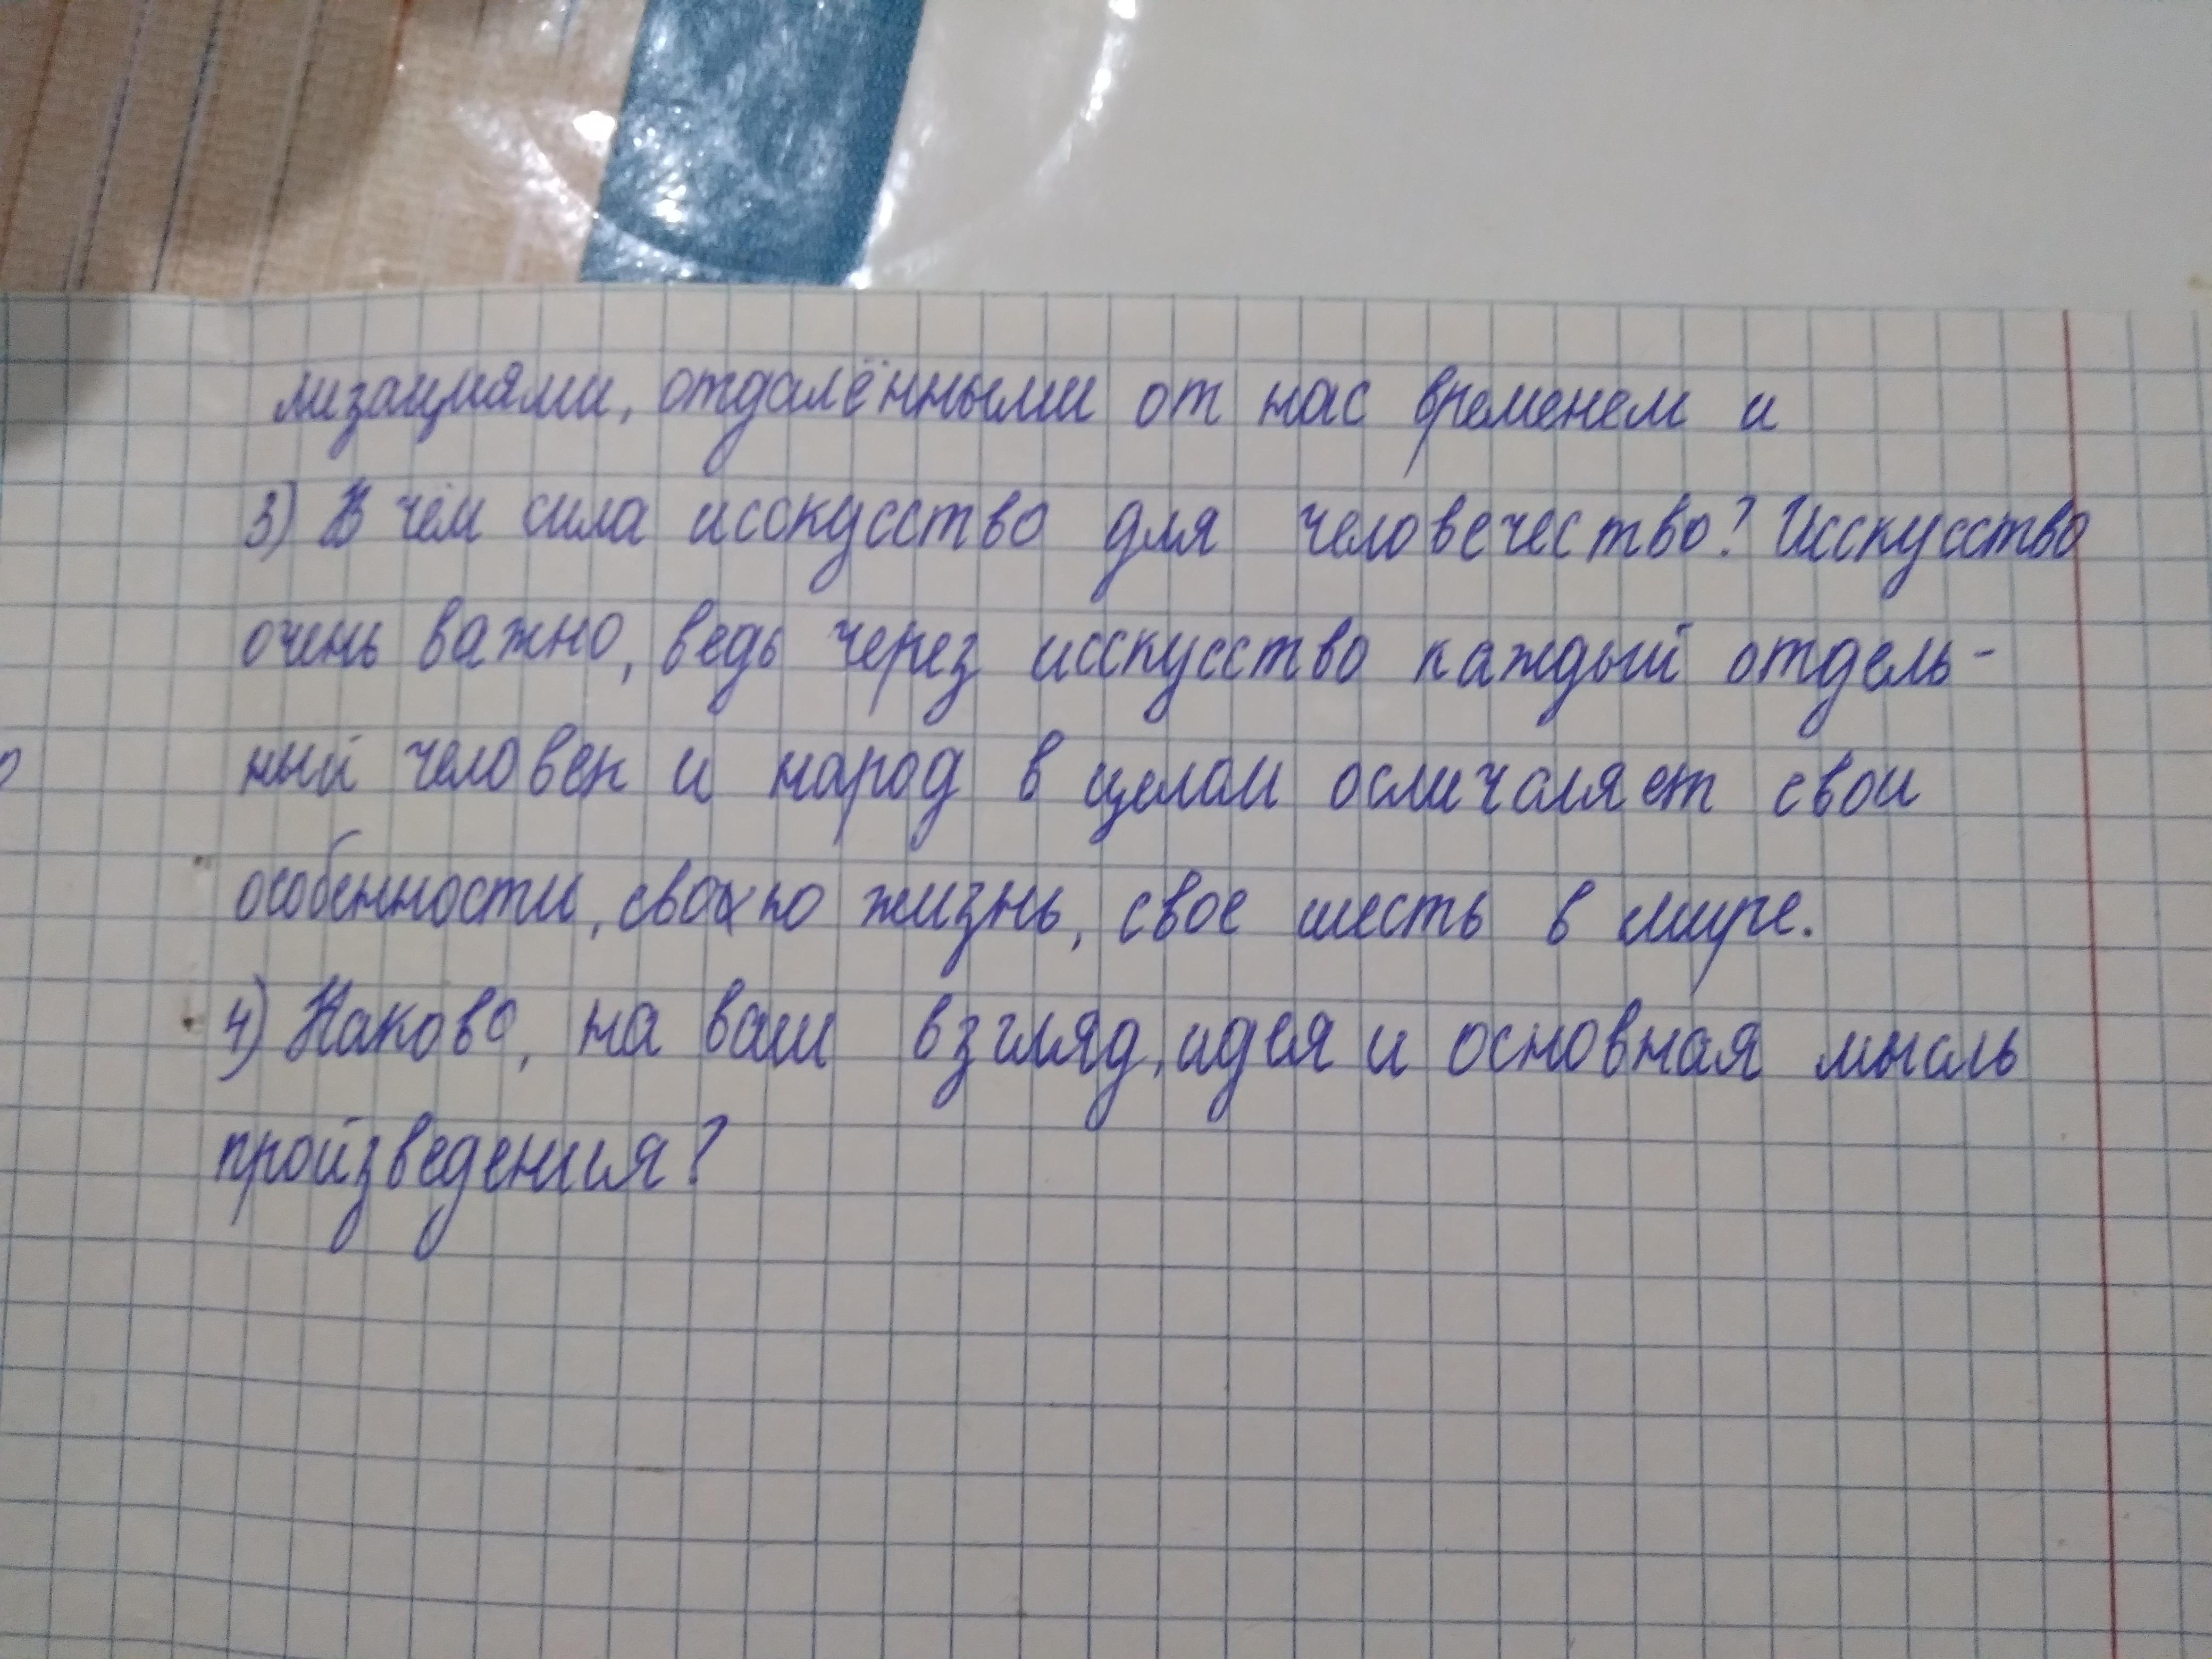 лизациями, отдалёнными от нас временем и
3) В чём сила исскусство для человечество? Исскусство
очень важно, ведь через исскусство каждый отдель-
ный человек и народ в целом осмичаляет свои
особенности, свою жизнь, свое месть в мире.
4) Каково, на ваш взгляд, идея и основная мысль
пройзведения?